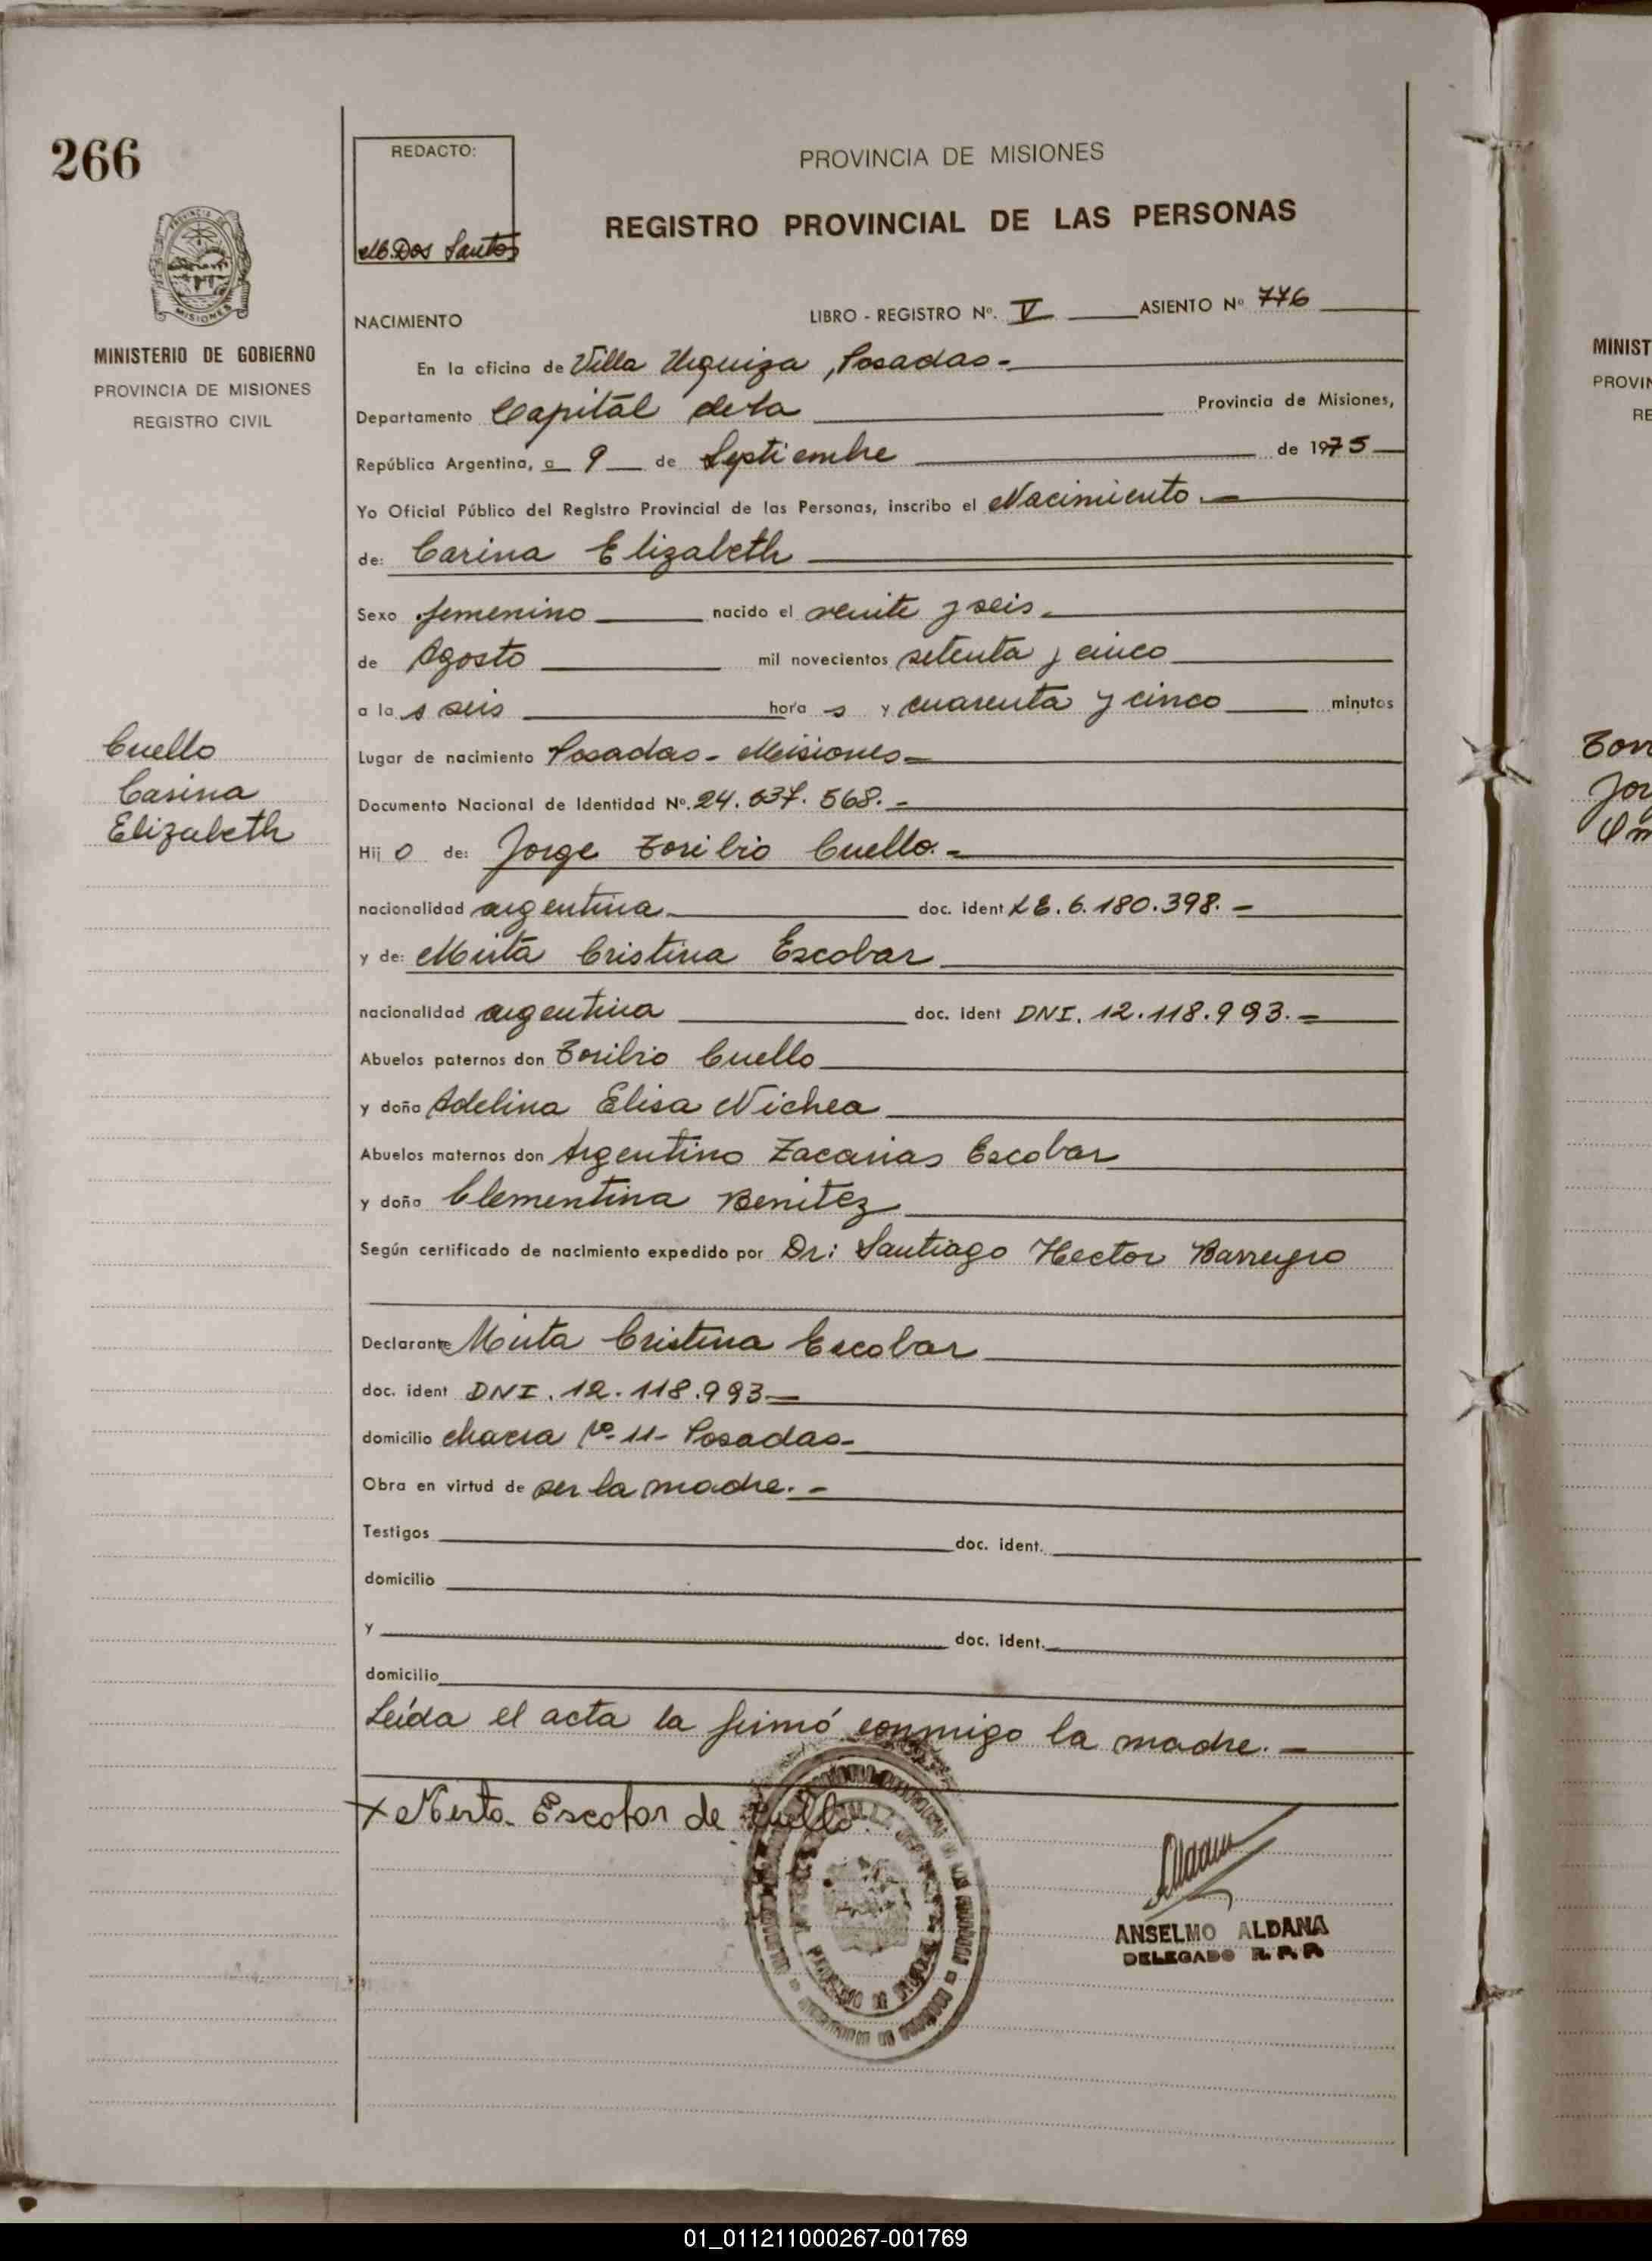 266
REDACTO:
M.B. Dos Santos
PROVINCIA DE MISIONES
REGISTRO PROVINCIAL DE LAS PERSONAS
MISIONES
MINISTERIO DE GOBIERNO
PROVINCIA DE MISIONES
REGISTRO CIVIL
NACIMIENTO LIBRO - REGISTRO Nº. V ASIENTO Nº 776
En la oficina de Villa Urquiza, Posadas.-
Departamento Capital de la Provincia de Misiones,
República Argentina, a 9 de Septiembre de 1975
Yo Oficial Público del Registro Provincial de las Personas, inscribo el Nacimiento.-
de: Carina Elizabeth
Sexo femenino nacido el veinte y seis.
de Agosto mil novecientos setenta y cinco
a la s seis hora s y cuarenta y cinco minutos
Cuello
Carina
Elizabeth
Lugar de nacimiento Posadas - Misiones-
Documento Nacional de Identidad Nº. 24.637.568.-
Hij o de: Jorge Toribio Cuello.-
nacionalidad argentina doc. ident LE.6.180.398.-
y de: Mirta Cristina Escobar
nacionalidad argentina doc. ident DNI. 12.118.993.-
Abuelos paternos don Toribio Cuello
y doña Adelina Elisa Nichea
Abuelos maternos don Argentino Zacarias Escobar
y doña Clementina Benitez
Según certificado de nacimiento expedido por Dr: Santiago Hector Barreyro
Declarante Mirta Cristina Escobar
doc. ident DNI. 12.118.993-
domicilio chacra Nº 11- Posadas-
Obra en virtud de ser la madre.-
Testigos doc. ident.
domicilio
y doc. ident.
domicilio
Leída el acta la firmó conmigo la madre.-
x Mirta Escobar de Cuello
Aldana
ANSELMO ALDANA
DELEGADO R. P. P.
MINIST
PROVIN
RE
Tor
Jor
01_011211000267-001769